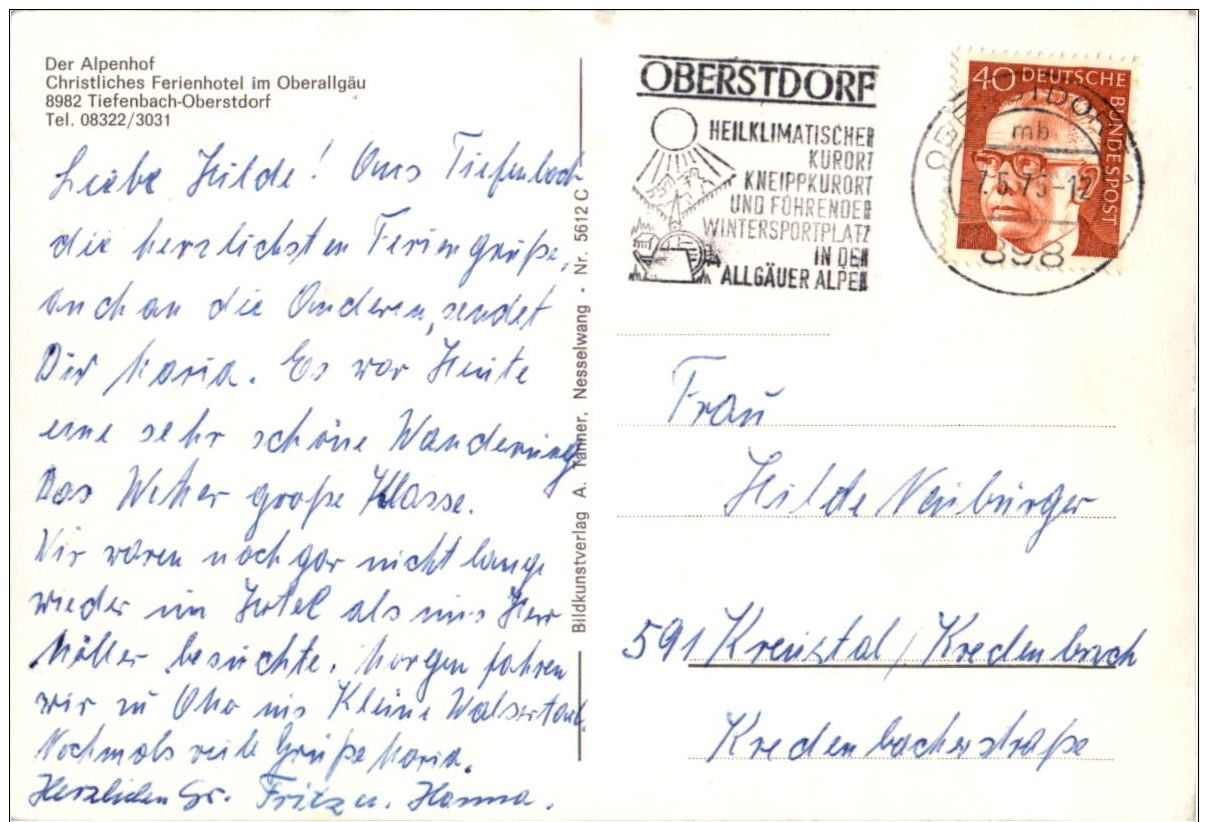 Der Alpenhof
Christliches Ferienhotel im Oberallgäu
8982 Tiefenbach-Oberstdorf
Tel. 08322/3031
Liebe Hilde! Aus Tiefenbach
die herzlichsten Feriengrüße,
auch an die Anderen, sendet
Dir Maria. Es war Heute
eine sehr schöne Wanderung
Das Wetter große Klasse.
Wir waren noch gar nicht lange
wieder im Hotel als uns Herr
Möller besuchte. Morgen fahren
wir zu Otto ins Kleine Walsertal.
Nochmals viele Grüße Maria.
Herzlichen Gr. Fritz u. Hanna.
Bildkunstverlag A. Tanner, Nesselwang - Nr. 5612 C
OBERSTDORF
HEILKLIMATISCHER
KURORT
KNEIPPKURORT
UND FÜHRENDER
WINTERSPORTPLATZ
IN DEN
ALLGÄUER ALPEN
40 DEUTSCHE BUNDESPOST
OBERSTDORF 1
mb
7.5.75-12
898
Frau
Hilde Neubürger
591 Kreuztal/Kredenbach
Kredenbacherstraße